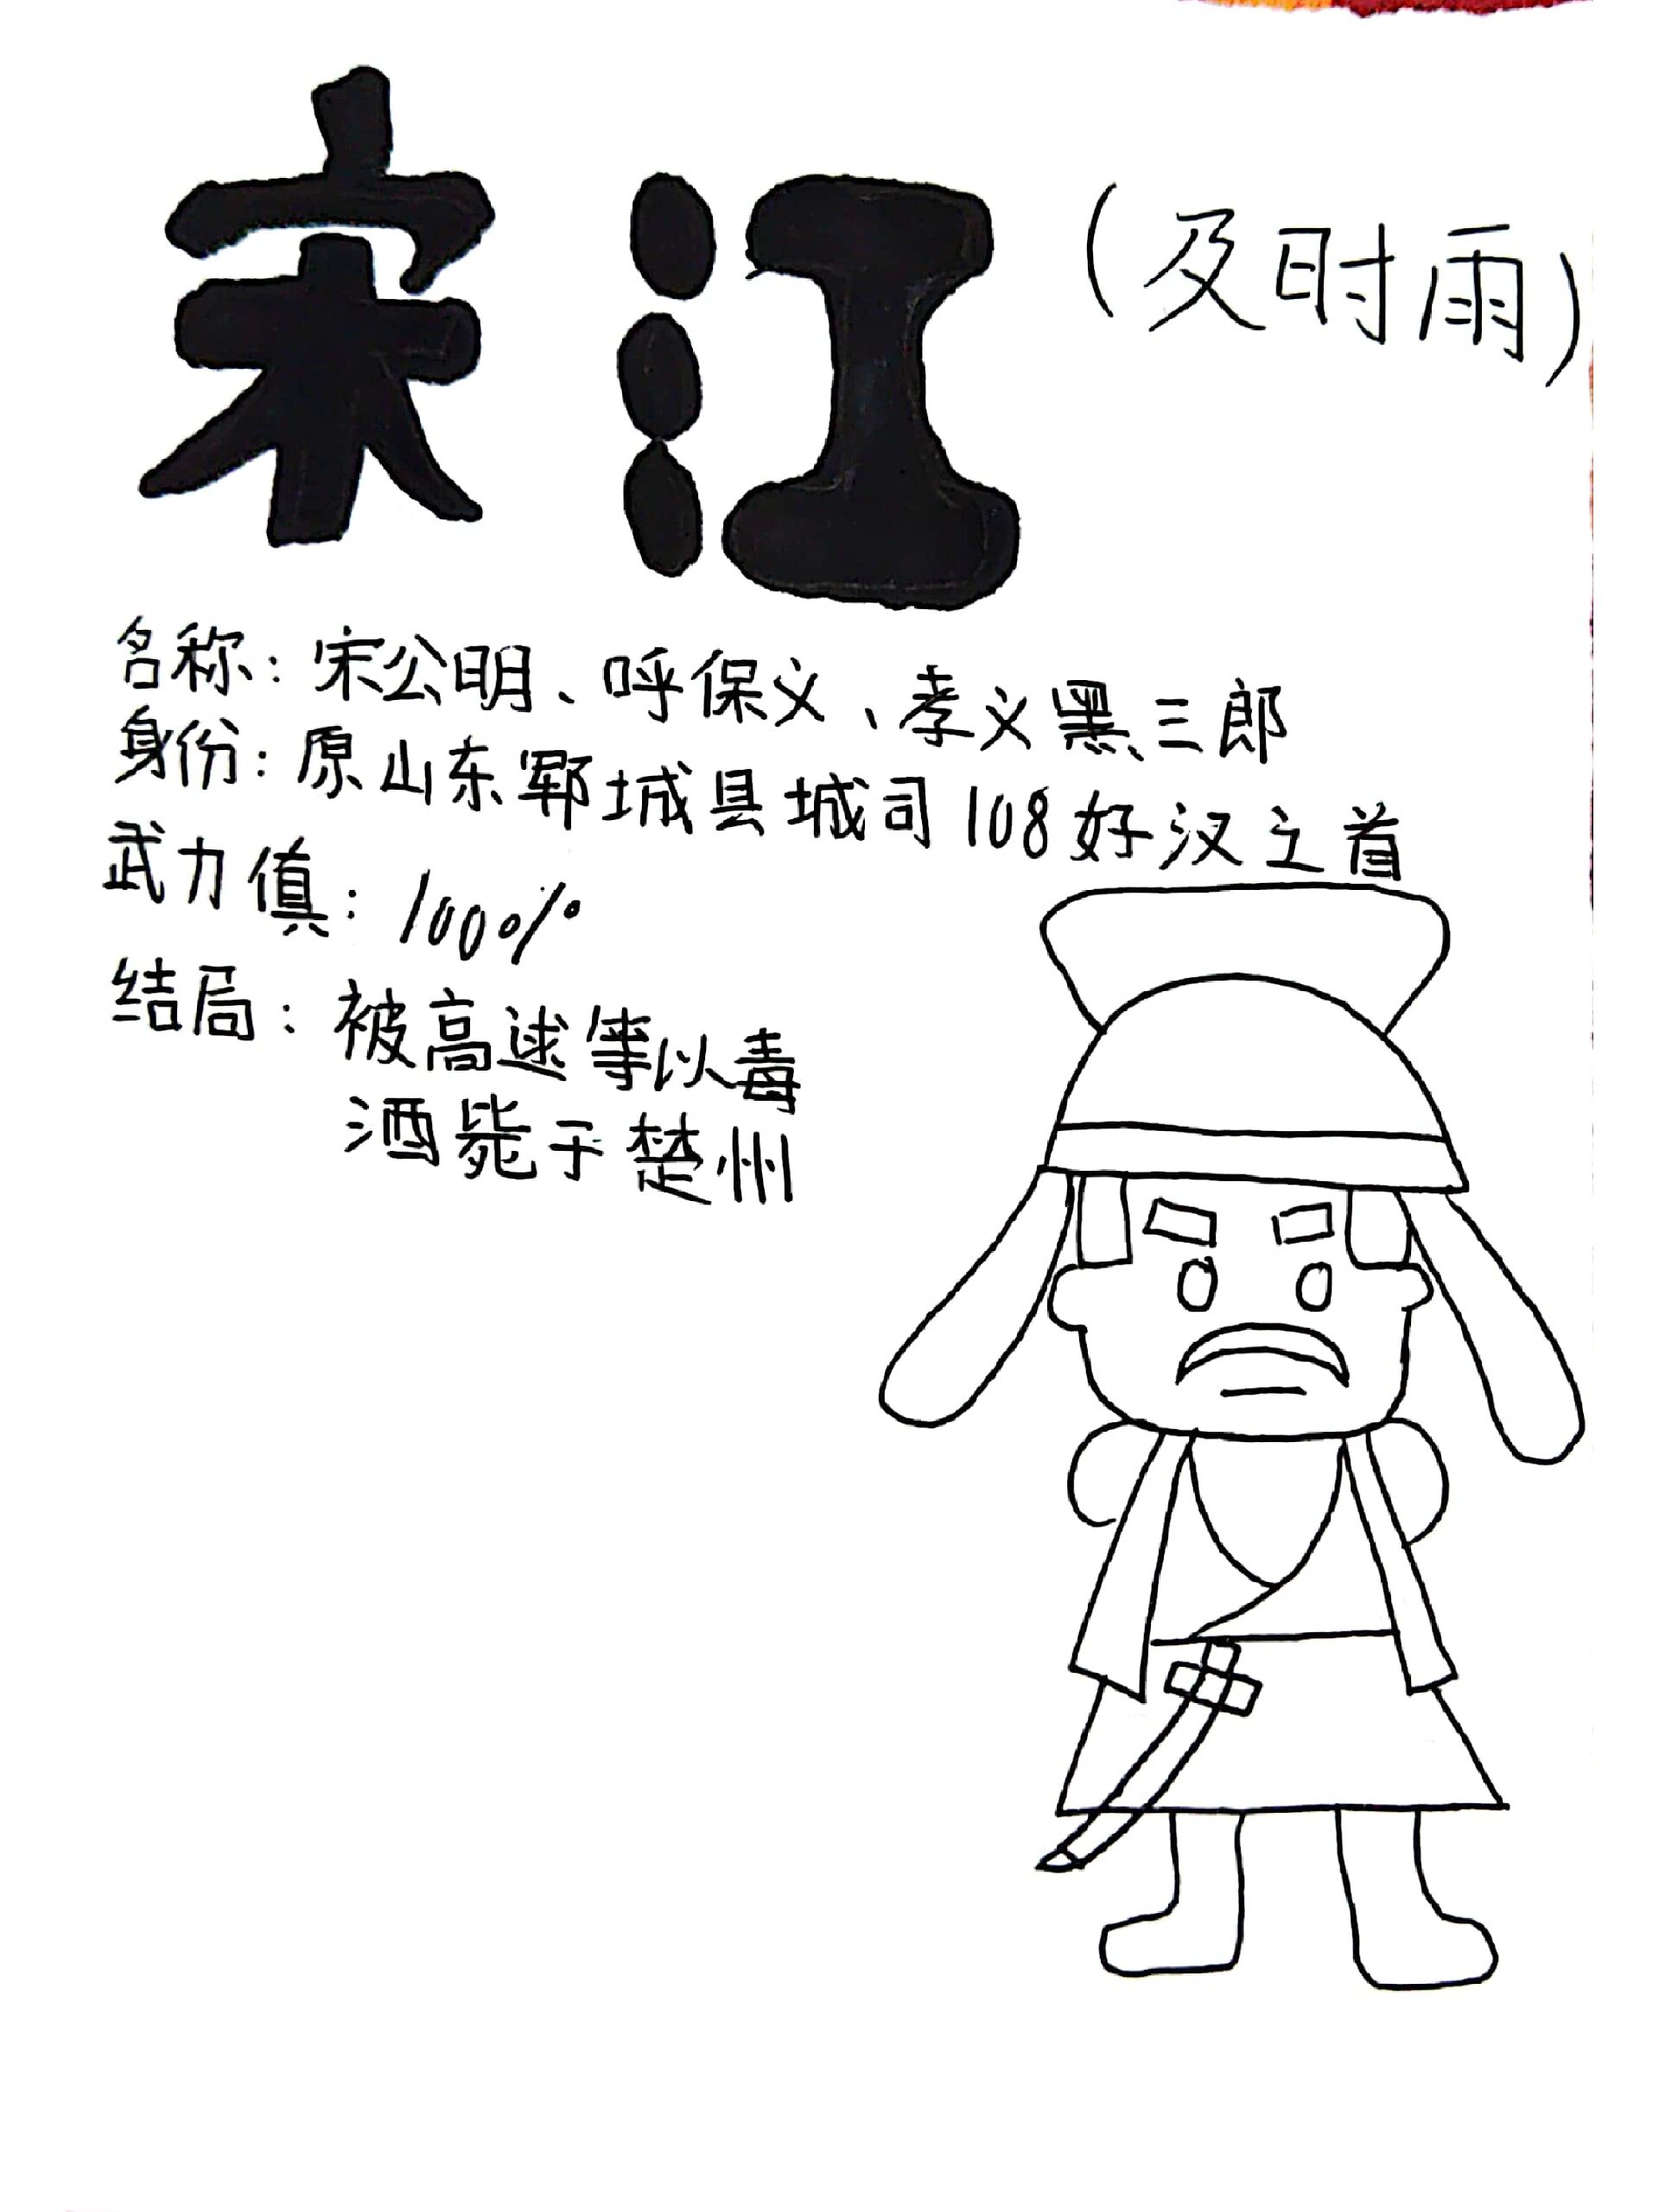 宋江（及时雨）
名称：宋公明、呼保义、孝义黑三郎
身份：原山东郓城县城司108好汉之首
武力值：100%
结局：被高逑等以毒
酒毙于楚州